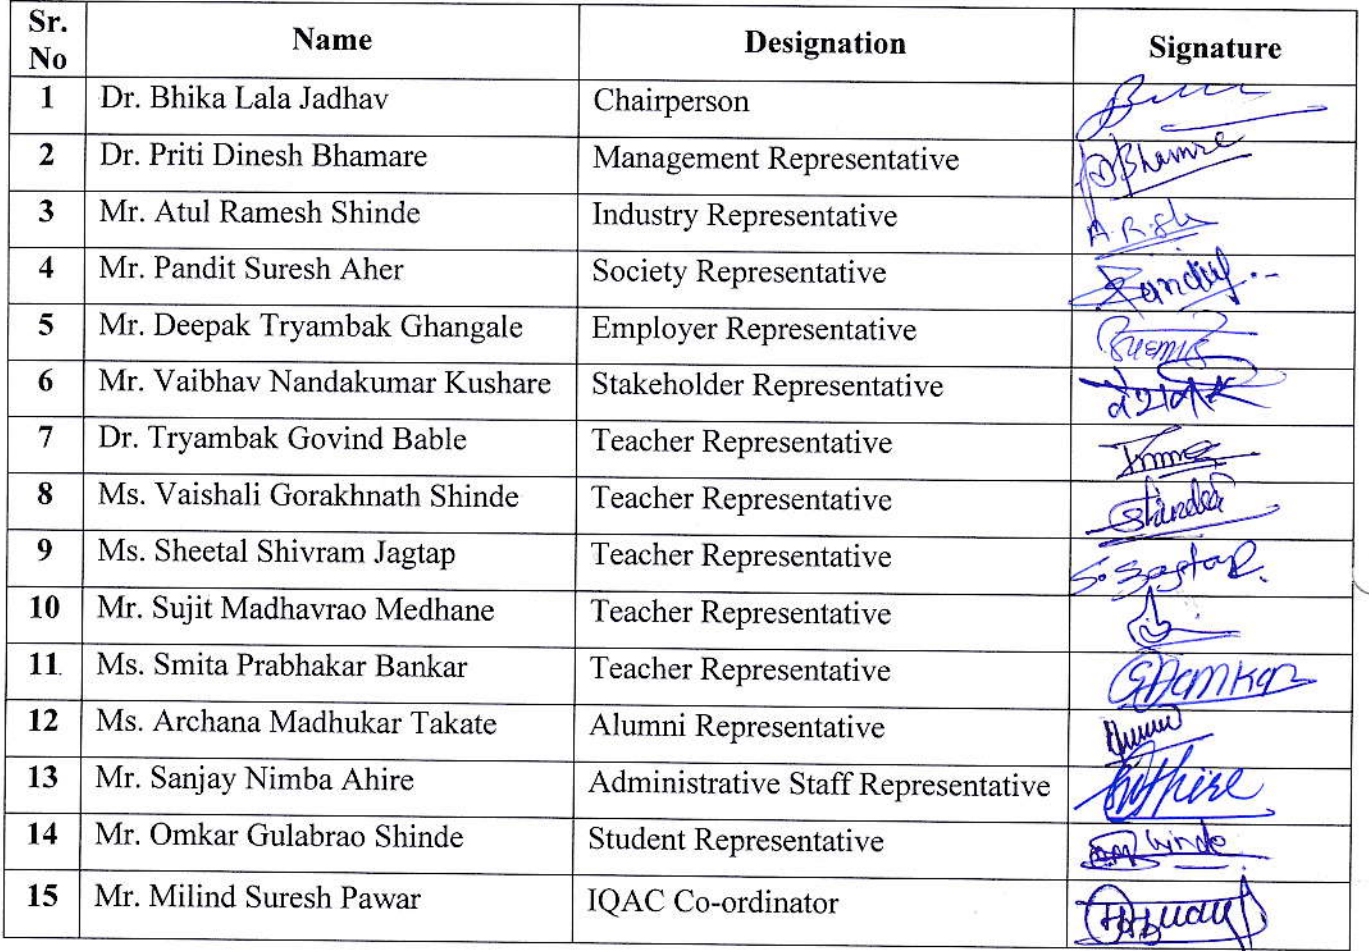 Sr. No Name Designation Signature
1 Dr. Bhika Lala Jadhav Chairperson
2 Dr. Priti Dinesh Bhamare Management Representative
3 Mr. Atul Ramesh Shinde Industry Representative A.R.Sh
4 Mr. Pandit Suresh Aher Society Representative
5 Mr. Deepak Tryambak Ghangale Employer Representative
6 Mr. Vaibhav Nandakumar Kushare Stakeholder Representative
7 Dr. Tryambak Govind Bable Teacher Representative
8 Ms. Vaishali Gorakhnath Shinde Teacher Representative
9 Ms. Sheetal Shivram Jagtap Teacher Representative
10 Mr. Sujit Madhavrao Medhane Teacher Representative
11 Ms. Smita Prabhakar Bankar Teacher Representative
12 Ms. Archana Madhukar Takate Alumni Representative
13 Mr. Sanjay Nimba Ahire Administrative Staff Representative
14 Mr. Omkar Gulabrao Shinde Student Representative
15 Mr. Milind Suresh Pawar IQAC Co-ordinator